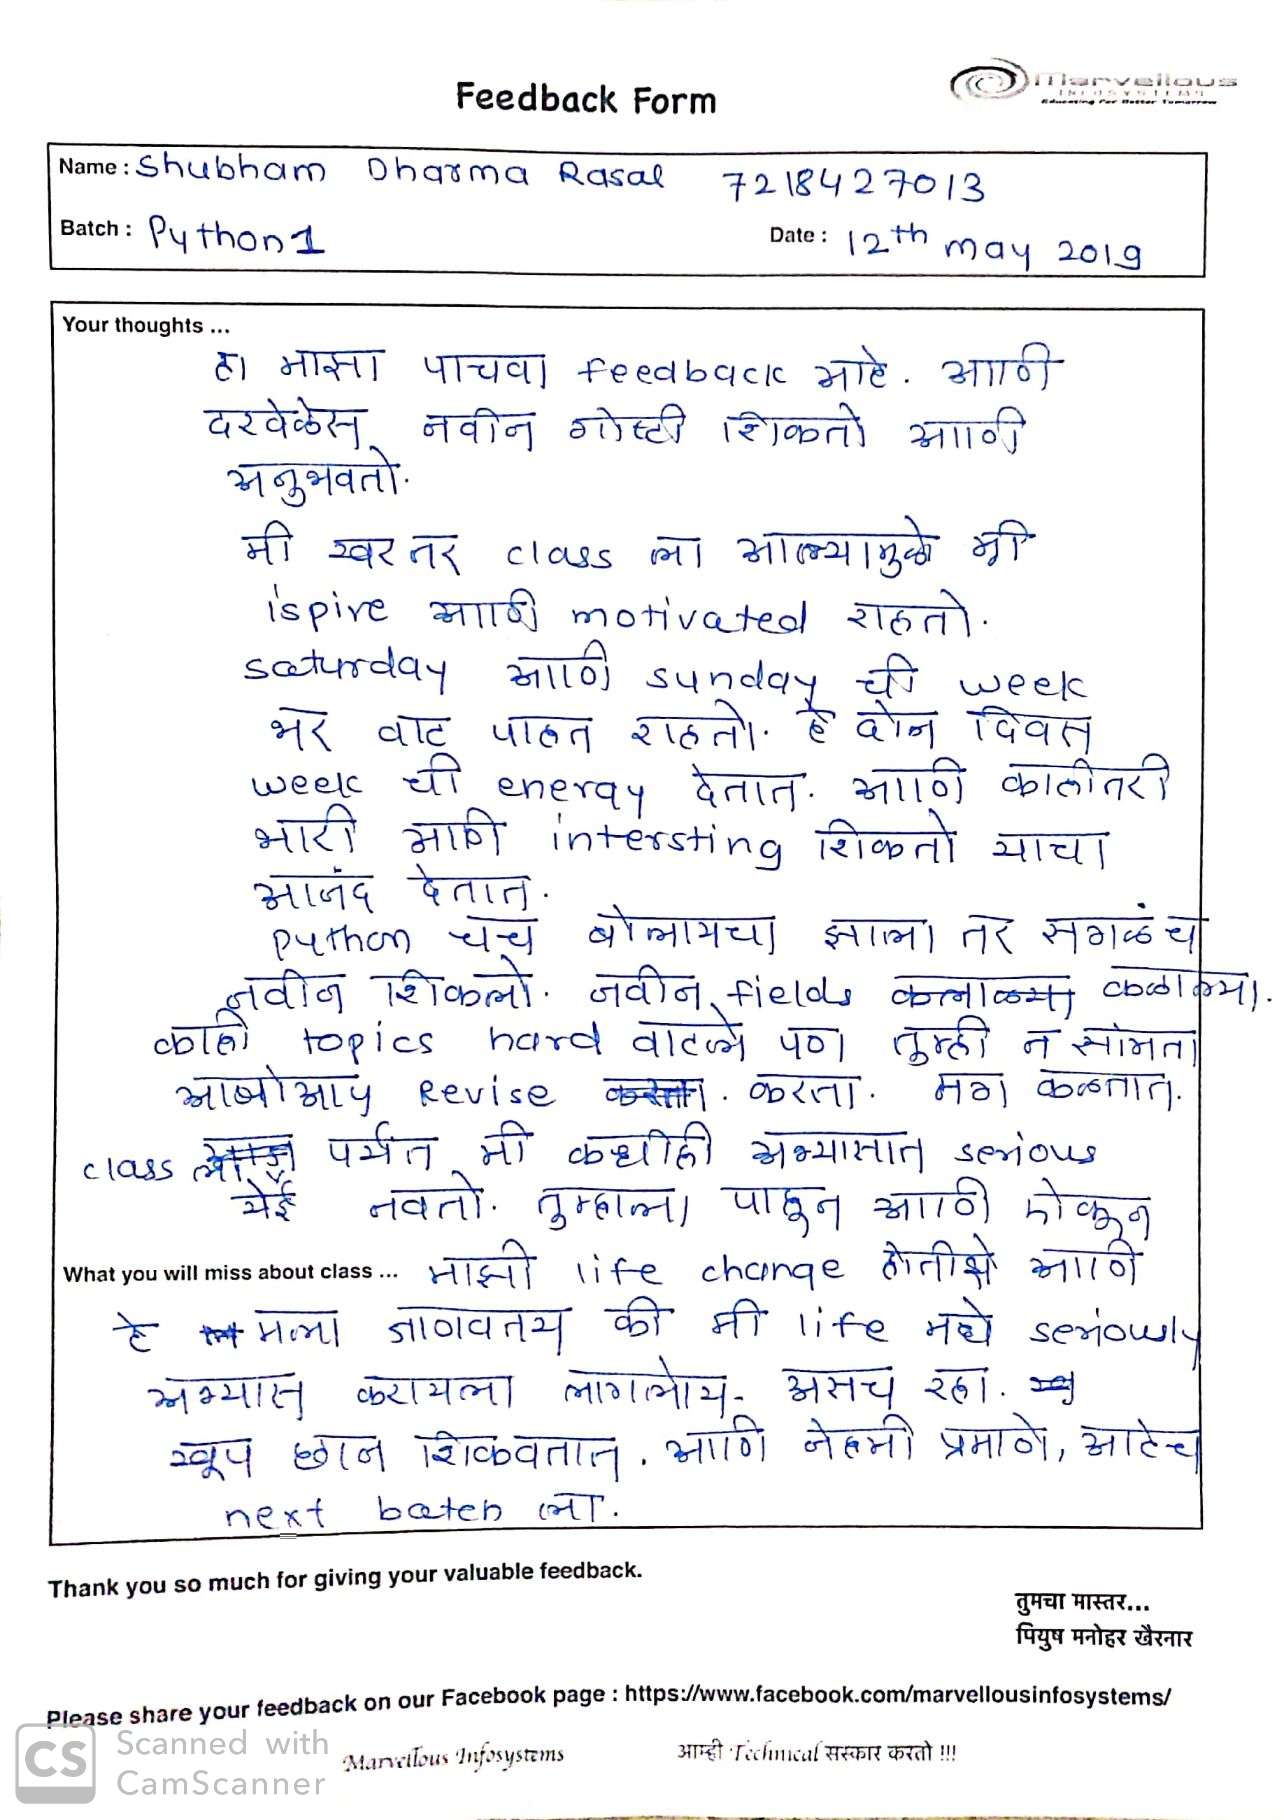 Feedback Form
Marvellous
INFOSYSTEMS
Educating For Better Tomorrow
Name : Shubham Dharma Rasal 7218427013
Batch : Python 1
Date : 12th may 2019
Your thoughts ...
हा माझा पाचवा feedback आहे. आणि
दरवेळेस नवीन गोष्टी शिकतो आणी
अनुभवतो.
मी खर तर class ला आल्यामुळे मी
ispire आणी motivated राहतो.
saturday आणी sunday ची week
भर वाट पाहत राहतो. हे दोन दिवस
week ची energy देतात. आणि काहीतरी
भारी आणी intersting शिकतो याचा
आनंद देतात.
Python चच बोलायचा झाला तर सगळंच
नवीन शिकलो. नवीन fields कळाल्या.
काही topics hard वाटले पण तुम्ही न सांगता
आपोआप Revise करता. मग कळतात.
class ला येई पर्यंत मी कधीही अभ्यासात serious
नवतो. तुम्हाला पाहून आणी ऐकून
What you will miss about class ... माझी life change होतीये आणि
हे मला जाणवतय की मी life मधे seriously
अभ्यास करायला लागलोय. असच रहा.
खूप छान शिकवतात. आणि नेहमी प्रमाणे, आहेच
next batch ला.
Thank you so much for giving your valuable feedback.
तुमचा मास्तर...
पियुष मनोहर खैरनार
Please share your feedback on our Facebook page : https://www.facebook.com/marvellousinfosystems/
Marvellous Infosystems
आम्ही Technical संस्कार करतो !!!
CS Scanned with
CamScanner